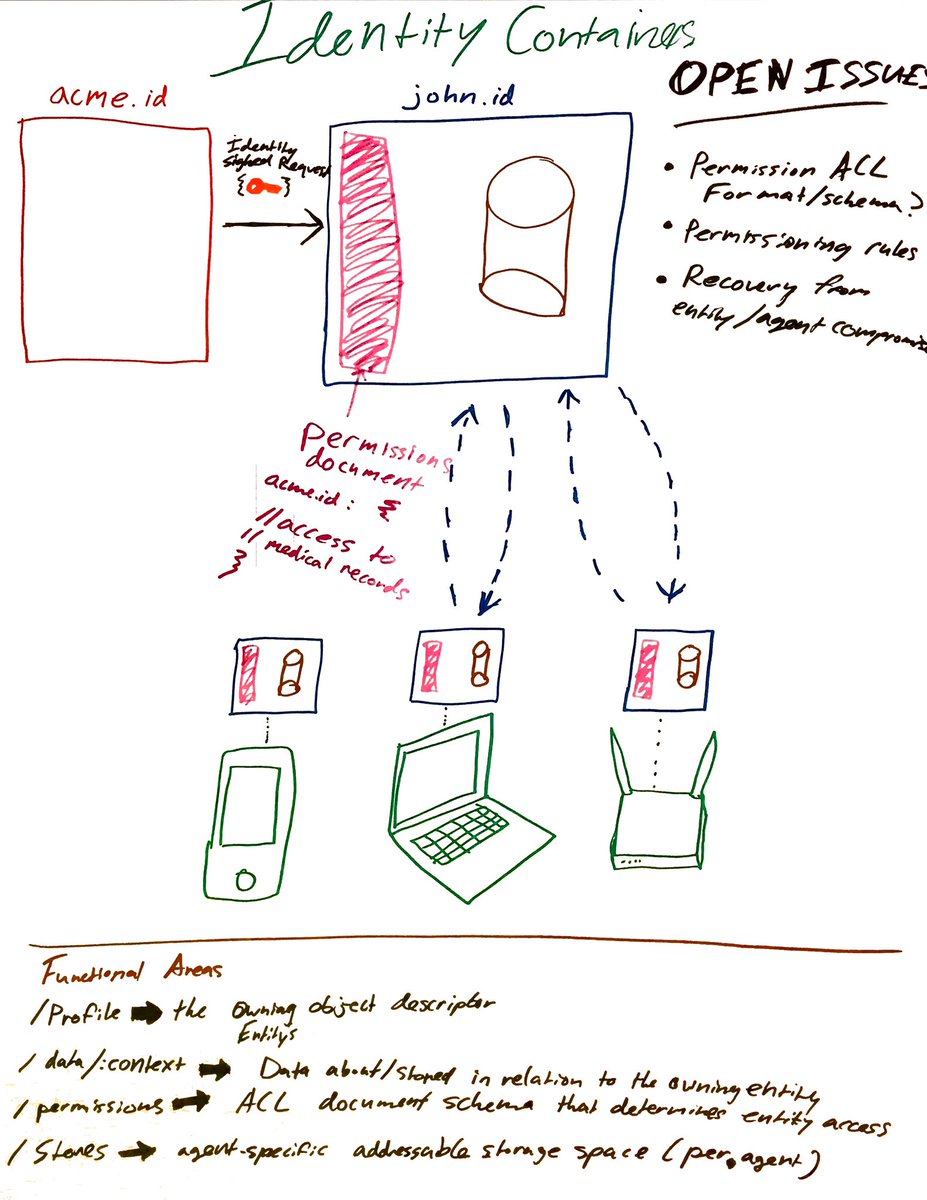 Identity Containers
acme.id
john.id
OPEN ISSUES
Identity
Signed Request
{ }
• Permission ACL
Format/schema?
• Permissioning rules
• Recovery from
entity/agent compromise
Permissions
document
acme.id : {
//access to
// medical records
}
Functional Areas
/Profile → the owning object descriptor
Entity's
/data/:context → Data about/stored in relation to the owning entity
/permissions → ACL document schema that determines entity access
/Stores → agent-specific addressable storage space (per.agent)